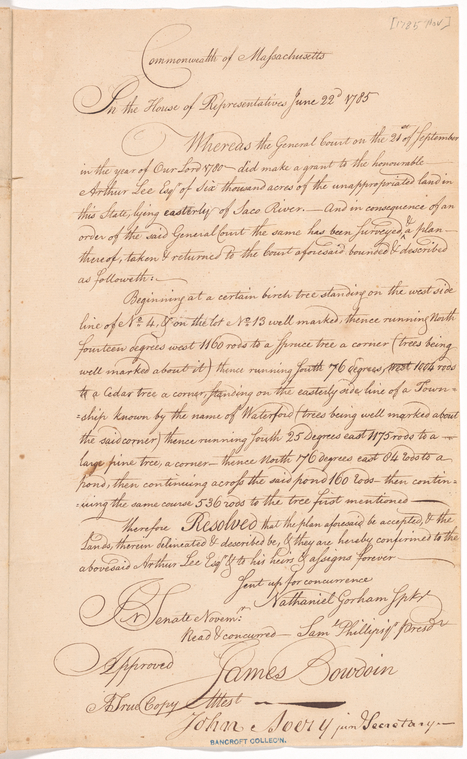 [1785 Nov]
Commonwealth of Massachusetts
In the House of Representatives June 22d 1785
Whereas the General Court on the 21st of September
in the year of Our Lord 1780 — did make a grant to the honourable
Arthur Lee Esqr of Six thousand acres of the unappropriated land in
this State, lying easterly of Saco River. — And in consequence of an
order of the said General Court the same has been Surveyed, & a plan
thereof, taken & returned to the Court aforesaid bounded & described
as followeth: —
Beginning at a certain birch tree standing on the west side
line of No. 4, & on the lot No. 13 well marked, thence running North
fourteen degrees west 1160 rods to a Spruce tree a corner (trees being
well marked about it) thence running South 76 degrees, west 1064 rods
to a Cedar tree a corner, standing on the easterly side line of a Town-
=ship known by the name of Waterford (trees being well marked about
the said corner) thence running South 25 degrees east 1175 rods to a
large pine tree, a corner — thence North 76 degrees east 84 rods to a
pond, then continuing across the said pond 160 rods — then contin-
=uing the same course 536 rods to the tree first mentioned —
therefore Resolved that the plan aforesaid be accepted, & the
Lands, therein delineated & describe be, & they are hereby confirmed to the
abovesaid Arthur Lee Esqr & to his heirs & assigns forever
Sent up for concurrence
Nathaniel Gorham Spkr
In Senate Novemr.
Read & concurred — Saml Phillips jr Presdt
Approved
James Bowdoin
A True Copy Attest
John Avery junr Secretary —
BANCROFT COLLECT'N.